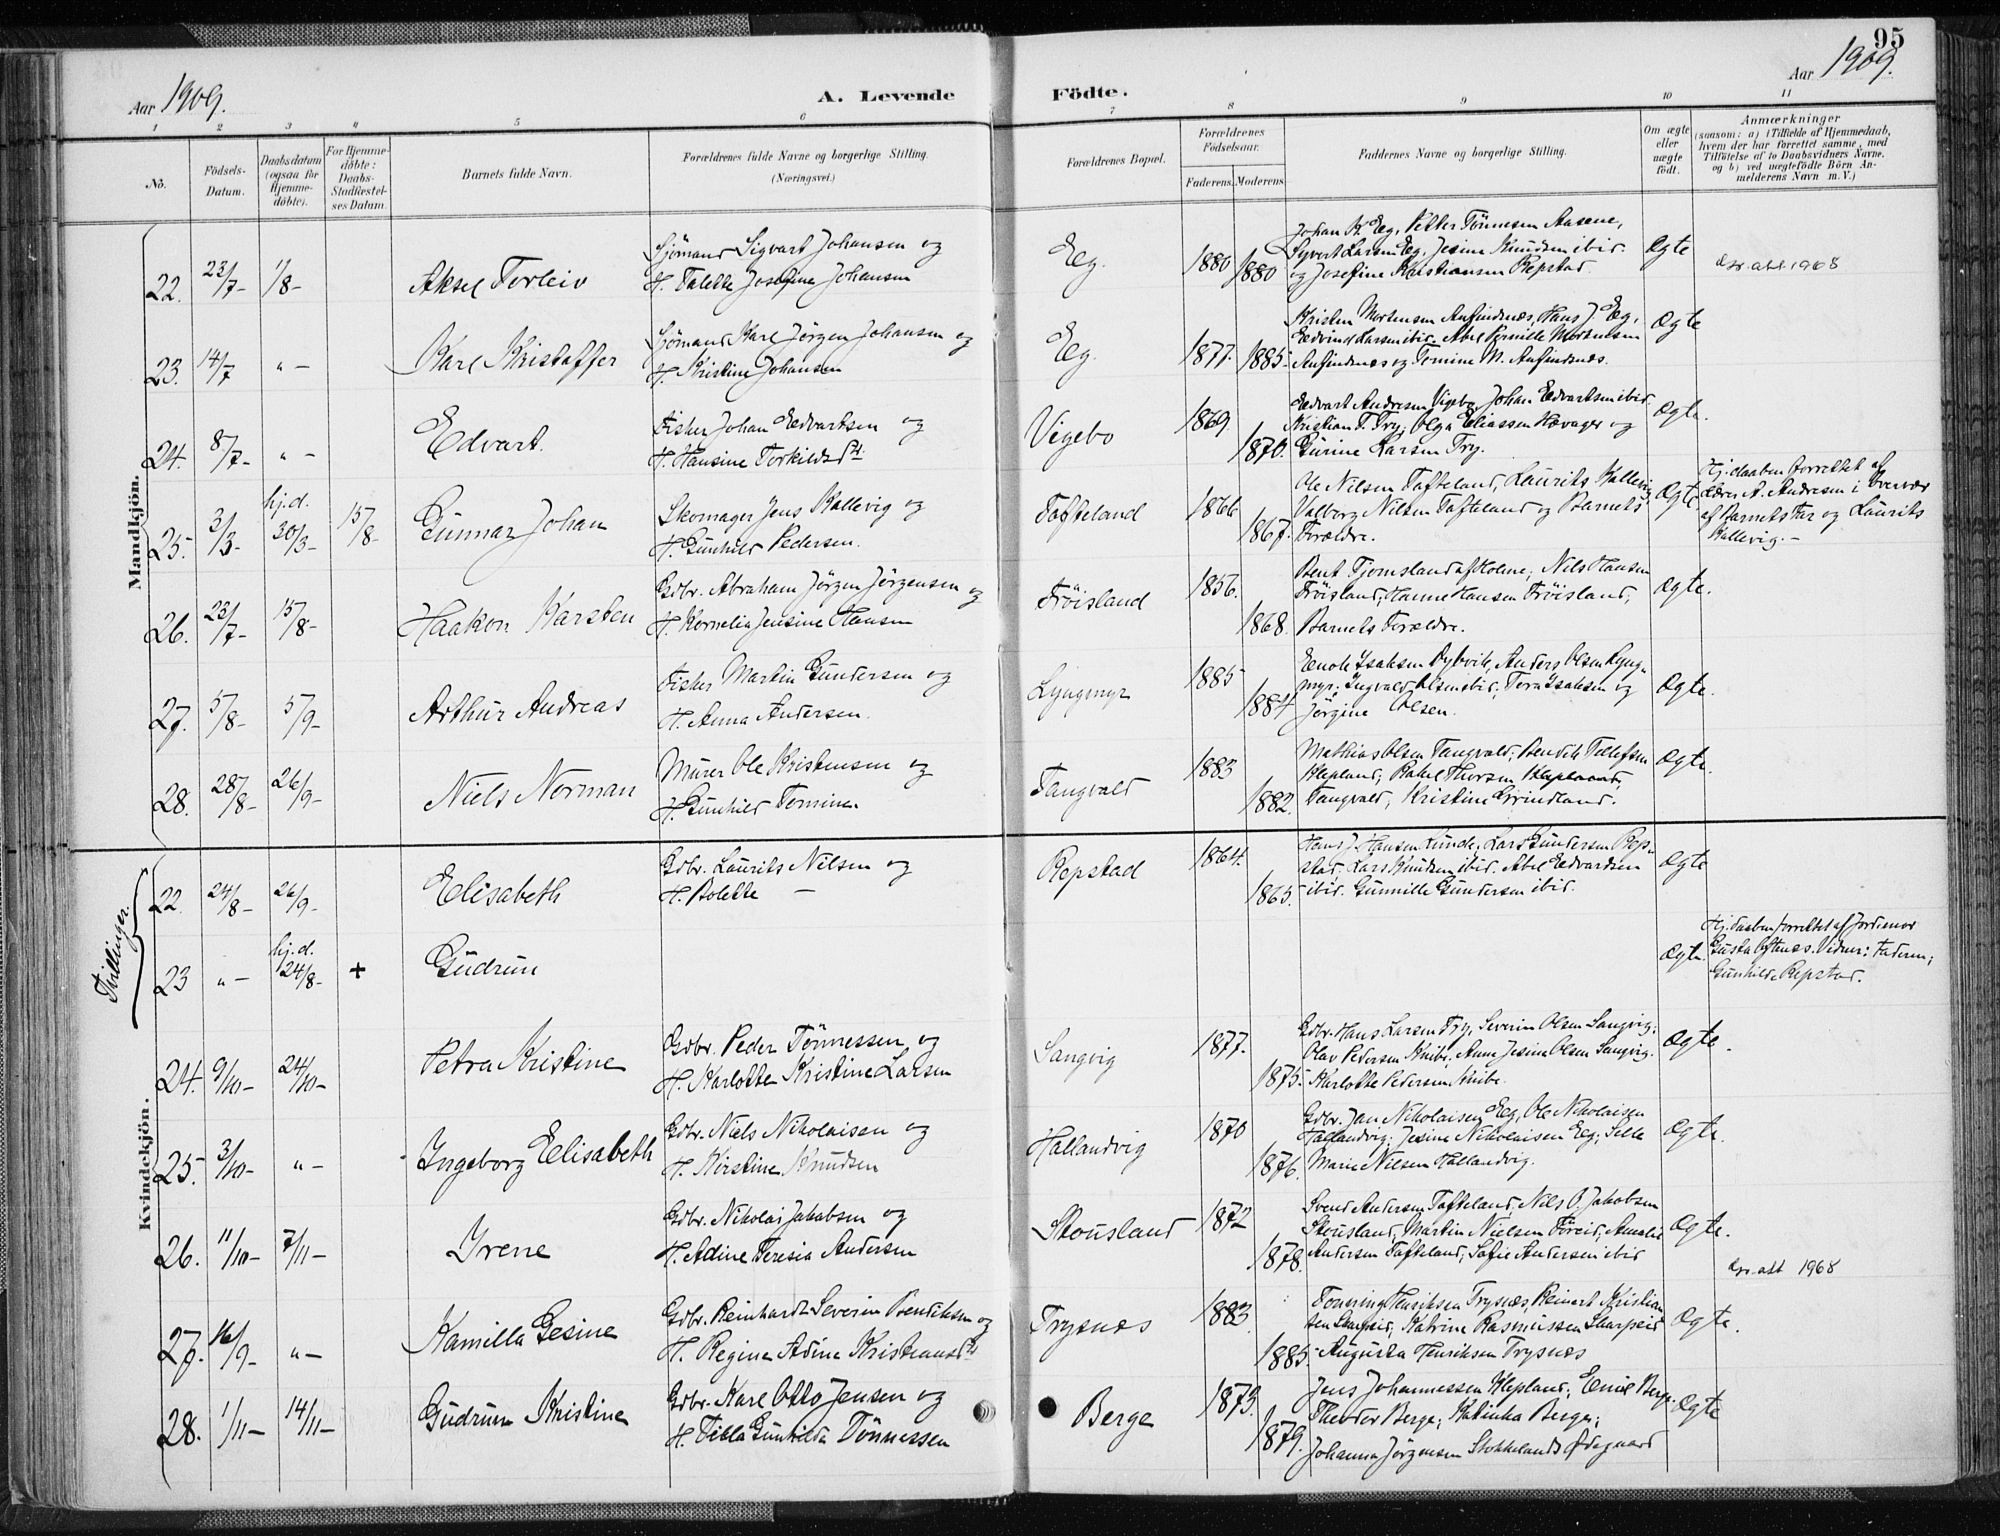 95
Aar 1909.
A. Levende
Födte.
Aar 1909.
1 2 3 4 5 6 7 8 9 10 11
No.
Födsels-Datum.
Daabsdatum (ogsaa for Hjemmedöbte).
For Hjemmedöbte: Daabs-Stadfæstelses Datum.
Barnets fulde Navn.
Forældrenes fulde Navne og borgerlige Stilling. (Næringsvei.)
Forældrenes Bopæl.
Forældrenes Födselsaar.
Faderens. Moderens.
Faddernes Navne og borgerlige Stilling.
Om ægte eller uægte födt.
Anmærkninger
(saasom: a) i Tilfælde af Hjemmedaab,
hvem der har forrettet samme, med
Tilföielse af to Daabsvidners Navne,
og b) ved uægtefödte Börn Anmelderens Navn m. V.)
Mandkjön.
22. 23/7- 1/8- Aksel Torleiv
Sjömand Sigvart Johansen og
H. Talette Josefine Johansen
Eg. 1880 1880
Johan K. Eg, Petter Tönnesen Aasene,
Syvert Larsen Eg, Jesine Knudsen ibid.
og Josefine Kristiansen Repstad.
Ægte
1968
23. 14/7 "- Karl Kristoffer
Sjömand Karl Jörgen Johansen og
H. Kristine Johansen
Eg. 1877. 1885-
Kristen Mortensen Aufindsnæs, Hans J. Eg,
Edvind Larsen ibid, Abel Pernille Mortensen
Aufindsnæs og Tomine M. Aufindsnæs.
Ægte
24. 8/7- "- Edvart.
Fisker Johan Edvartsen og
H. Hansine Torkildsdt.
Vigebo 1869. 1870.
Edvart Andresen Vigebo, Johan Edvartsen ibid.
Kristian T. Try; Olga Eliassen Kævager og
Gurine Larsen Try.
Ægte.
25. 3/3- hj.d. 30/3- 15/8- Gunnar Johan
Skomager Jens Kallevig og
H. Gunhild Pedersen.
Tofteland 1866 1867.
Ole Nilsen Tofteland, Laurits Kallevig
Valborg Nilsen Tofteland og Barnets
Forældre.
Ægte.
Hj.daaben forrettet af
Lærer A. Andresen i Overvær
af Barnets Far og Laurits
Kallevig.-
26. 23/7- 15/8- Haakon Karsten
Gdbr. Abraham Jörgen Jörgensen og
H. Kornelia Jensine Hansen
Fröisland 1856. 1868.
Bent Fjomsland af Holme; Nils Hansen
Fröisland; Hanne Hansen Fröisland,
Barnets Forældre.
Ægte.
27. 5/8- 5/9- Arthur Andreas
Fisker Martin Gundersen og
H. Anna Andersen.
Lyngmyr 1885 1884
Enok Isaksen Dybvik, Anders Olsen Lyng-
myr; Ingvald Olsen ibid; Tora Isaksen og
Jörgine Olsen.
Ægte.
28. 28/8- 26/9- Niels Norman
Murer Ole Kristensen og
H. Gunhild Tomine
Tangvald 1883 1882.
Mathias Olsen Tangvald; Bendik Tellefsen
Klepland, Rakel Thorsen
Tangvald, Kristine Grindland.
Ægte.
Kvindekjön.
Tvillinger.
22. 24/8- 26/9- Elisabeth
Gdbr. Laurits Nilsen og
H. Bolette -
Repstad 1864. 1865.
Hans J. Hansen Lunde, Lars Gundersen Rep-
stad, Lars Knudsen ibid. Abel Edvardsen
ibid. Gunnille Gundersen ibid.
Ægte
23 "- hj.d. 24/8- + Gudrun
Ægte.
Hj.daaben forrettet af Jordemor
Gusta Oftenæs. Vidner: Faderen;
Gunhilde Repstad.
24. 9/10- 24/10- Petra Kristine
Gdbr. Peder Tönnessen og
H. Karlotte Kristine Larsen
Langvig 1877. 1875-
Gdbr. Hans Larsen Try, Severin Olsen Langvig.
Olav Pedersen Knibe, Anne Jesine Olsen Langvig.
Karlotte Pedersen Knibe.
Ægte.
25. 3/10- "- Ingeborg Elisabeth
Gdbr. Niels Nikolaisen og
H. Kirstine Knudsen
Hallandvig 1870 1876.
Gdbr. Jan Nikolaisen Eg, Ole Nikolaisen
Hallandvig; Jesine Nikolaisen Eg; Selle
Marie Nilsen Hallandvig.
Ægte.
26. 11/10- 7/11- Irene
Gdbr. Nikolai Jakobsen og
H. Adine Teresia Andersen
Stousland 1872 1878.
Svend Andersen Tofteland, Nils O. Jakobsen
Stousland, Martin Nielsen Töreid; Amalie
Andersen Tofteland; Sofie Andersen ibid
Ægte.
1968
27. 16/9- "- Kamilla Gesine
Gdbr. Reinhardt Severin Bendiksen og
H. Regine Adine Kristiansdt.
Trysnæs 1883 1885.
Tönning Henriksen Trysnæs, Reinert Kristian
sen Skarpeid; Katrine Rasmussen Skarpeid
Augusta Henriksen Trysnæs
Ægte.
28. 1/11- 14/11- Gudrun Kristine
Gdbr. Karl Otto Jensen og
H. Tilla Gunhilda Tönnessen
Berge 1873. 1879.
Jens Johannessen Klepland; Emil Berge.
Theodor Berge; Katinka Berge;
Johanna Jörgensen Stokkelands Ødegaard
Ægte